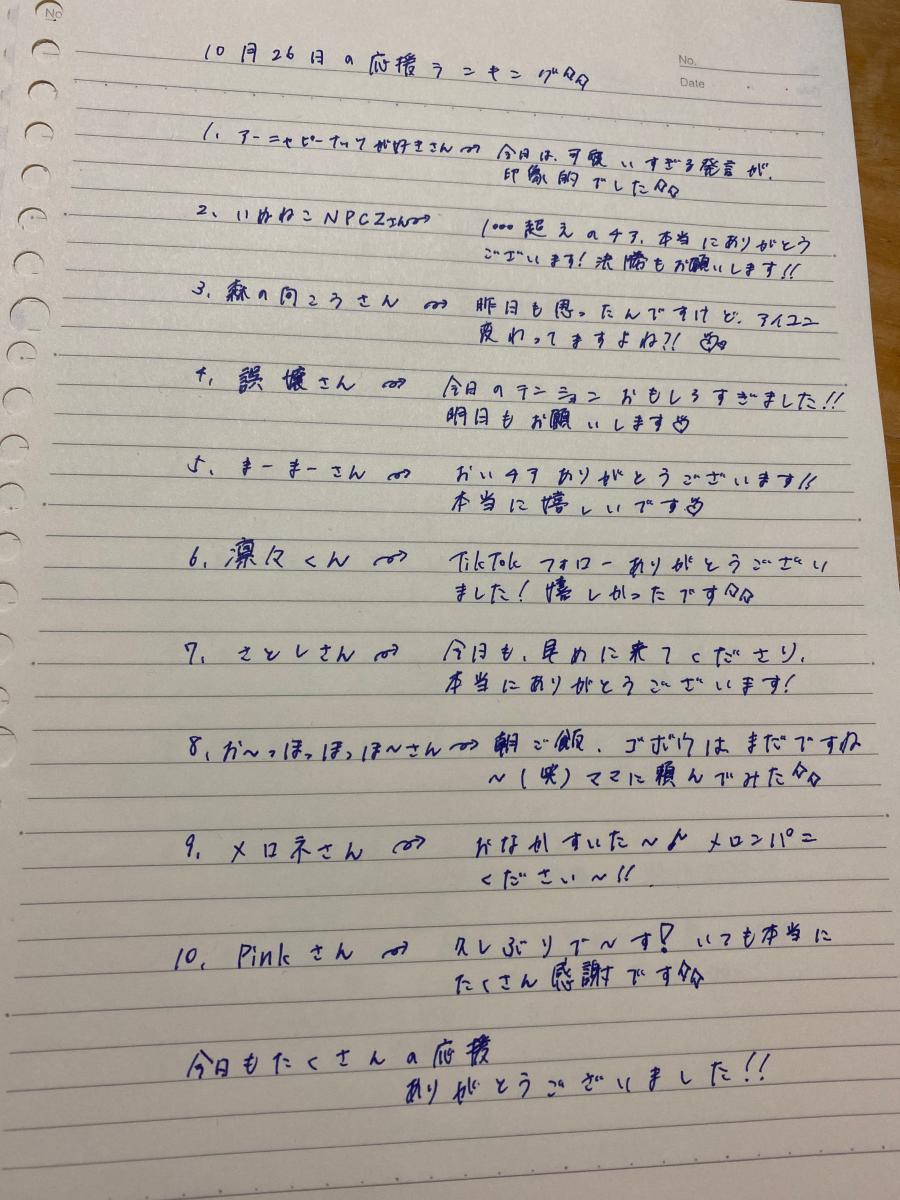 No
No.
Date
10月26日の応援ランキング☆☆
1. アーニャピーナッツが好きさん→ 今日は、可愛いすぎる発言が、
印象的でした☆☆
2. いぬねこNPCZさん→ 1000超えのチア、本当にありがとう
ございます!決勝もお願いします!!
3. 森の向こうさん → 昨日も思ったんですけど、アイコン
変わってますよね?!
4. 誤嬢さん → 今日のテンションおもしろすぎました!!
明日もお願いします♡
5. まーまーさん → おいチアありがとうございます!!
本当に嬉しいです♡
6. 凛々くん → TikTokフォローありがとうござい
ました!嬉しかったです☆☆
7. さとしさん → 今日も、早めに来てくださり、
本当にありがとうございます!
8. か〜っほっほっほ〜さん→ 朝ご飯、ゴボウはまだですね
〜(笑)ママに頼んでみた☆☆
9. メロネさん → おなかすいた〜♪ メロンパン
ください〜!!
10. Pinkさん → 久しぶりで〜す! いても本当に
たくさん感謝です☆☆
今日もたくさんの応援
ありがとうございました!!